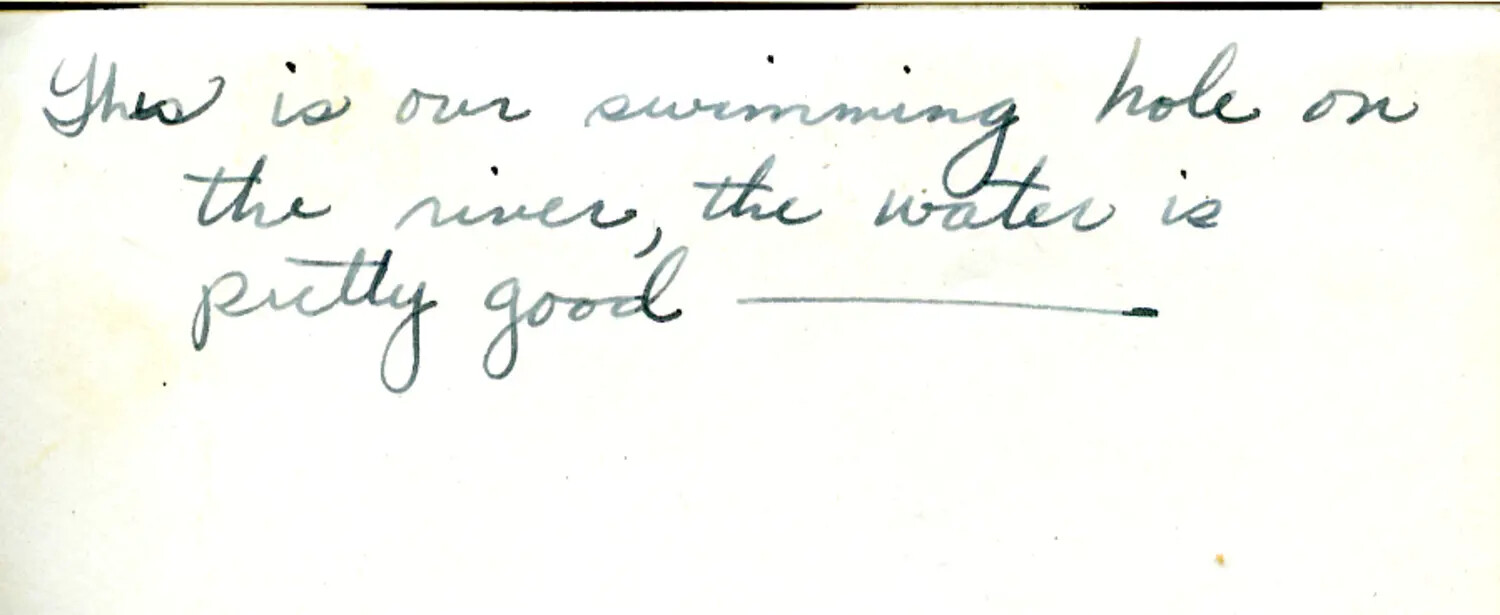 This is our swimming hole on
the river, the water is
pretty good —